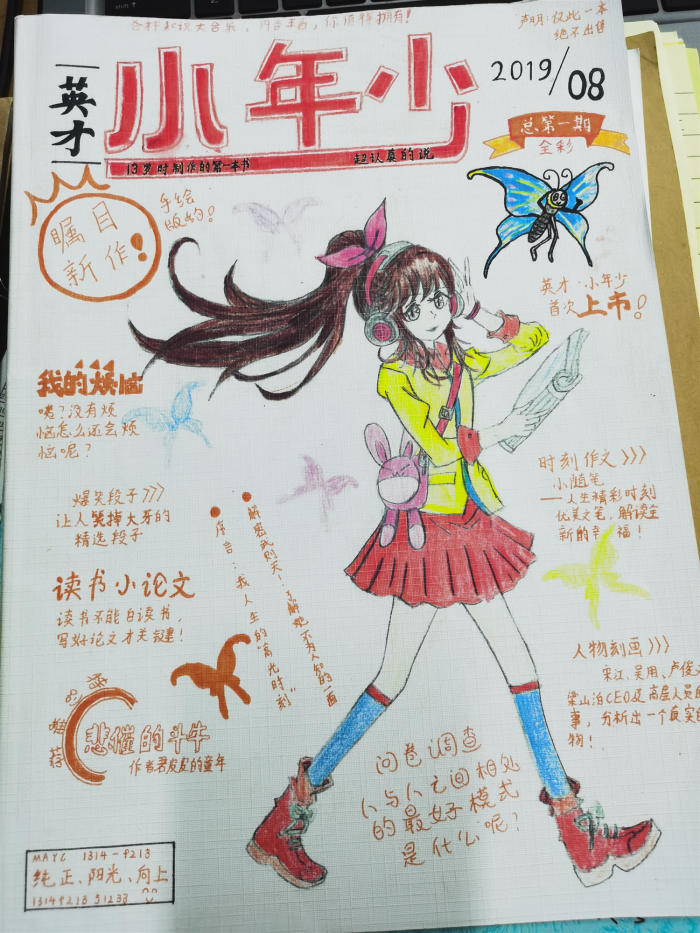 各种知识大合乐，内容丰富，你值得拥有！
声明：仅此一本
绝不出售
英才
小年少
2019/08
13岁时制作的第一本书
超认真的说
总第一期
全彩
瞩目
新作！
手绘
版的！
英才：小年少
首次上市！
我的烦恼
咾？没有烦
恼怎么还会烦
恼呢？
爆笑段子>>>
让人笑掉大牙的
精选段子
时刻作文>>>
小随笔
——人生精彩时刻
优美文笔，解读全
新的幸福！
解密武则天！了解她不为人知的一面
序言：我人生的"高光时刻"
读书小论文
读书不能白读书，
写好论文才关键！
人物刻画>>>
宋江、吴用、卢俊
梁山泊CEO及高层人员
事，分析出一个真实的
物！
推荐
悲催的斗牛
作者君发起的童年
问卷调查
人与人之间相处
的最好模式
是什么呢？
MAYC 1314-9213
纯正、阳光、向上
13149213 51233